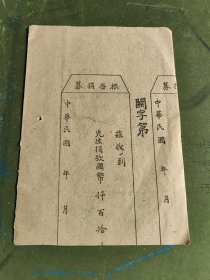 中華民國 年 月
募捐
關字第
募捐啓根
茲收到
先生捐欵國幣 仟 百 拾
中華民國 年 月